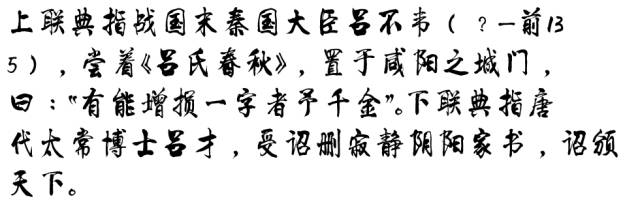 上联典指战国末秦国大臣吕不韦（？—前13
5），尝着《吕氏春秋》，置于咸阳之城门，
曰：“有能增损一字者予千金”。下联典指唐
代太常博士吕才，受诏删寂静阴阳家书，诏颁
天下。